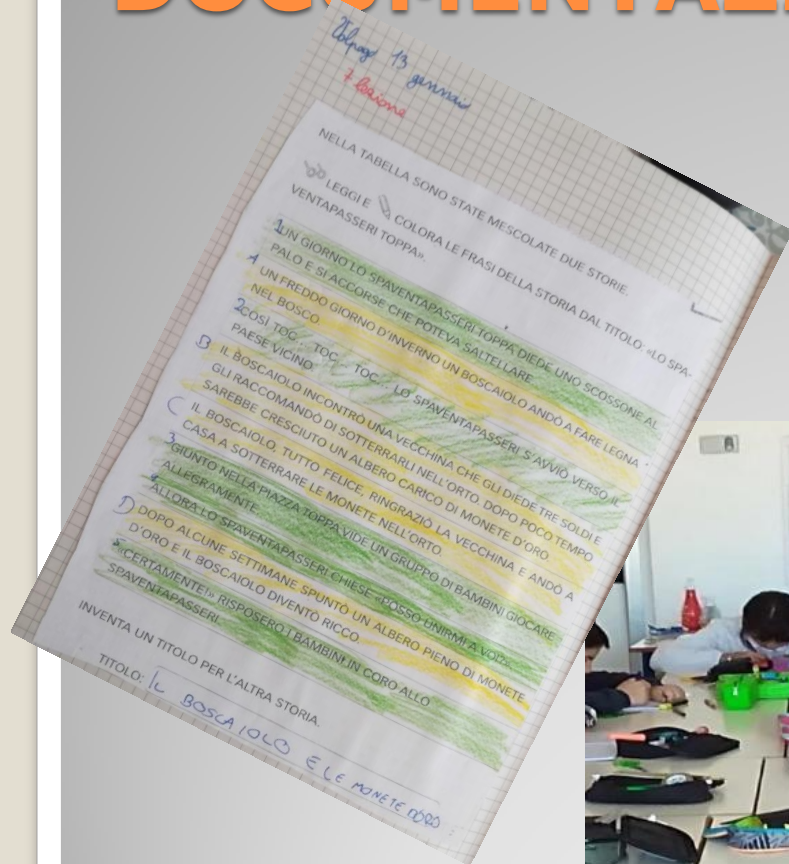 DOCUMENTAZI
Volpago 13 gennaio
7 lezione
NELLA TABELLA SONO STATE MESCOLATE DUE STORIE.
LEGGI E COLORA LE FRASI DELLA STORIA DAL TITOLO: «LO SPA-
VENTAPASSERI TOPPA».
1 UN GIORNO LO SPAVENTAPASSERI TOPPA DIEDE UNO SCOSSONE AL
PALO E SI ACCORSE CHE POTEVA SALTELLARE
A UN FREDDO GIORNO D'INVERNO UN BOSCAIOLO ANDÒ A FARE LEGNA
NEL BOSCO
2 COSÌ TOC TOC TOC LO SPAVENTAPASSERI S'AVVIÒ VERSO IL
PAESE VICINO
B IL BOSCAIOLO INCONTRÒ UNA VECCHINA CHE GLI DIEDE TRE SOLDI E
GLI RACCOMANDÒ DI SOTTERRARLI NELL'ORTO. DOPO POCO TEMPO
SAREBBE CRESCIUTO UN ALBERO CARICO DI MONETE D'ORO
C IL BOSCAIOLO, TUTTO FELICE, RINGRAZIÒ LA VECCHINA E ANDÒ A
CASA A SOTTERRARE LE MONETE NELL'ORTO.
3 GIUNTO NELLA PIAZZA TOPPA VIDE UN GRUPPO DI BAMBINI GIOCARE
ALLEGRAMENTE.
4 ALLORA LO SPAVENTAPASSERI CHIESE «POSSO UNIRMI A VOI?».
D DOPO ALCUNE SETTIMANE SPUNTÒ UN ALBERO PIENO DI MONETE
D'ORO E IL BOSCAIOLO DIVENTÒ RICCO.
5 «CERTAMENTE!» RISPOSERO I BAMBINI IN CORO ALLO
SPAVENTAPASSERI.
INVENTA UN TITOLO PER L'ALTRA STORIA.
TITOLO: IL BOSCAIOLO E LE MONETE D'ORO